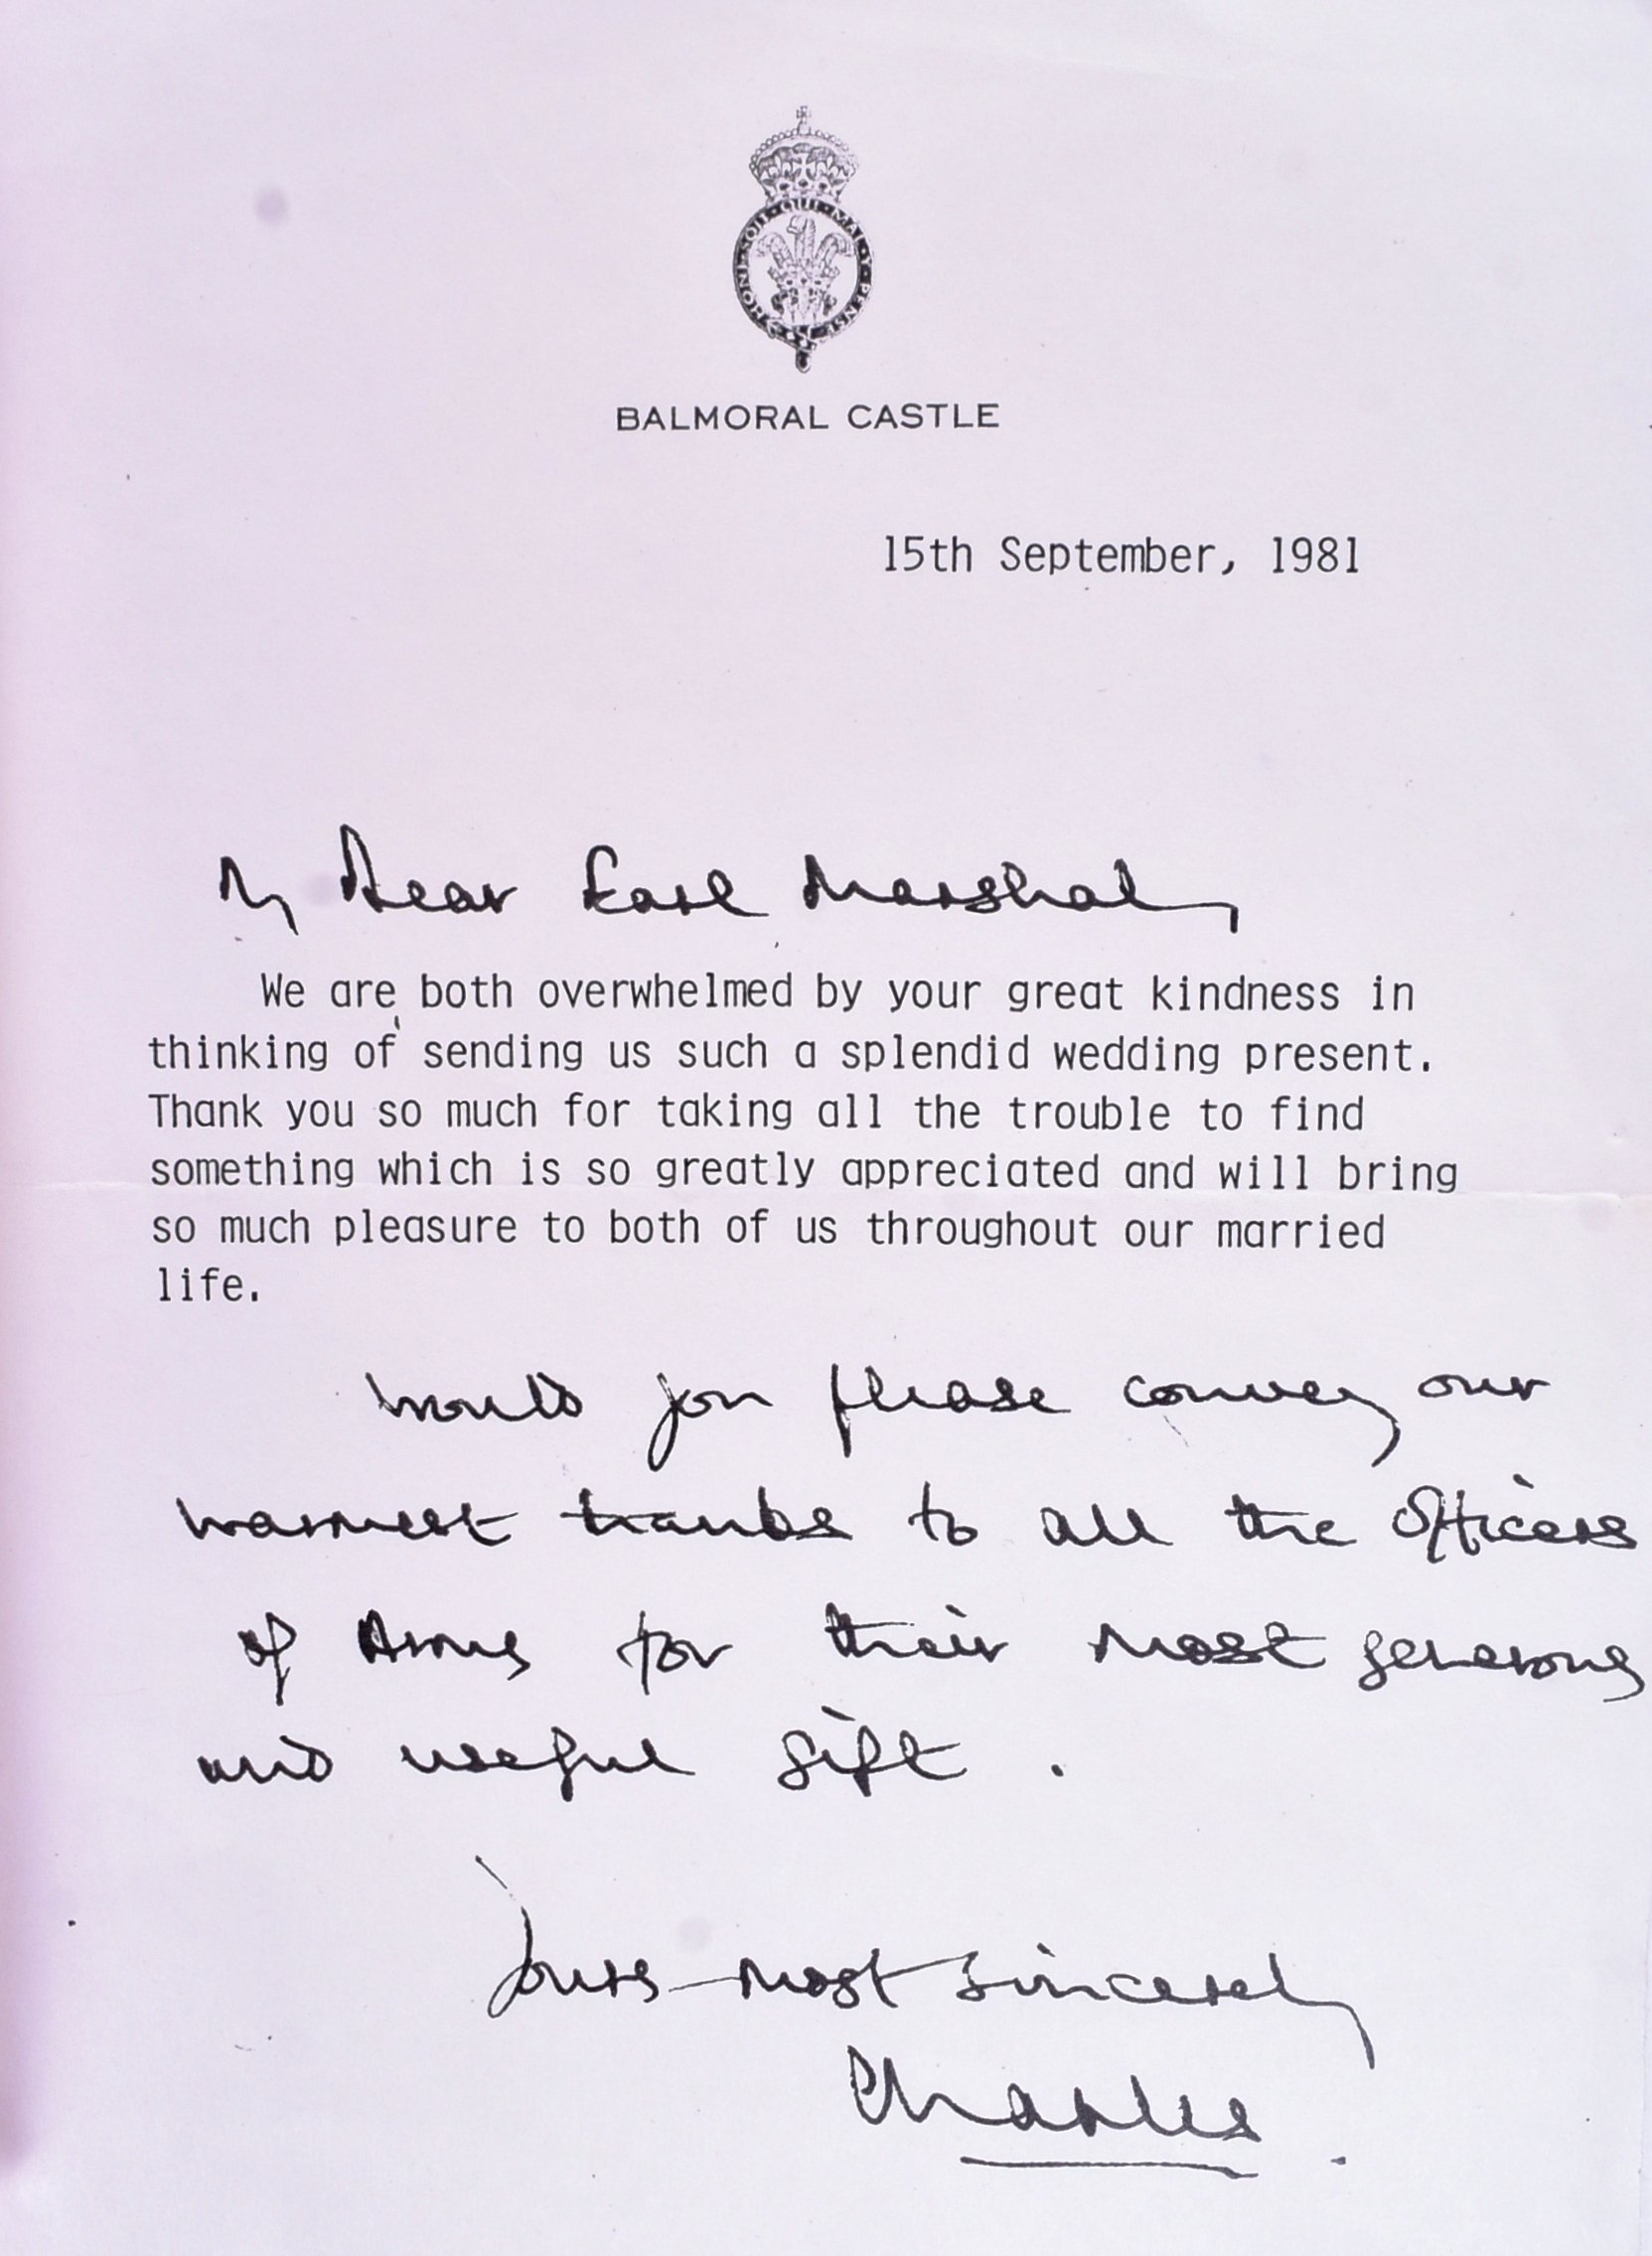 HONI·SOIT·QUI·MAL·Y·PENSE
BALMORAL CASTLE
15th September, 1981
My Dear Earl Marshal,
We are both overwhelmed by your great kindness in
thinking of sending us such a splendid wedding present.
Thank you so much for taking all the trouble to find
something which is so greatly appreciated and will bring
so much pleasure to both of us throughout our married
life.
Would you please convey our
warmest thanks to all the Officers
of Arms for their most generous
and useful gift.
Yours most sincerely
Charles.